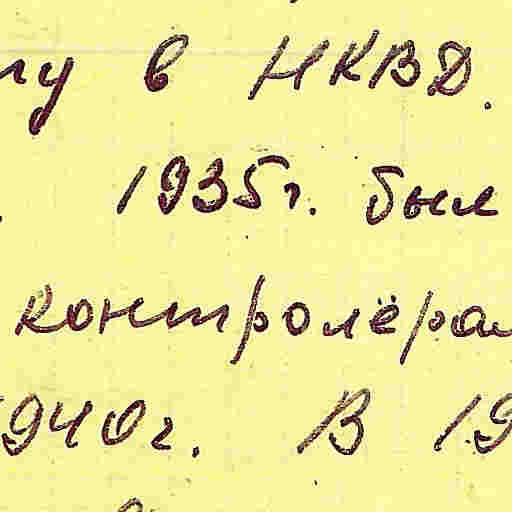 лу в НКВД.
1935г. был
контролёрам
1940г. В 19